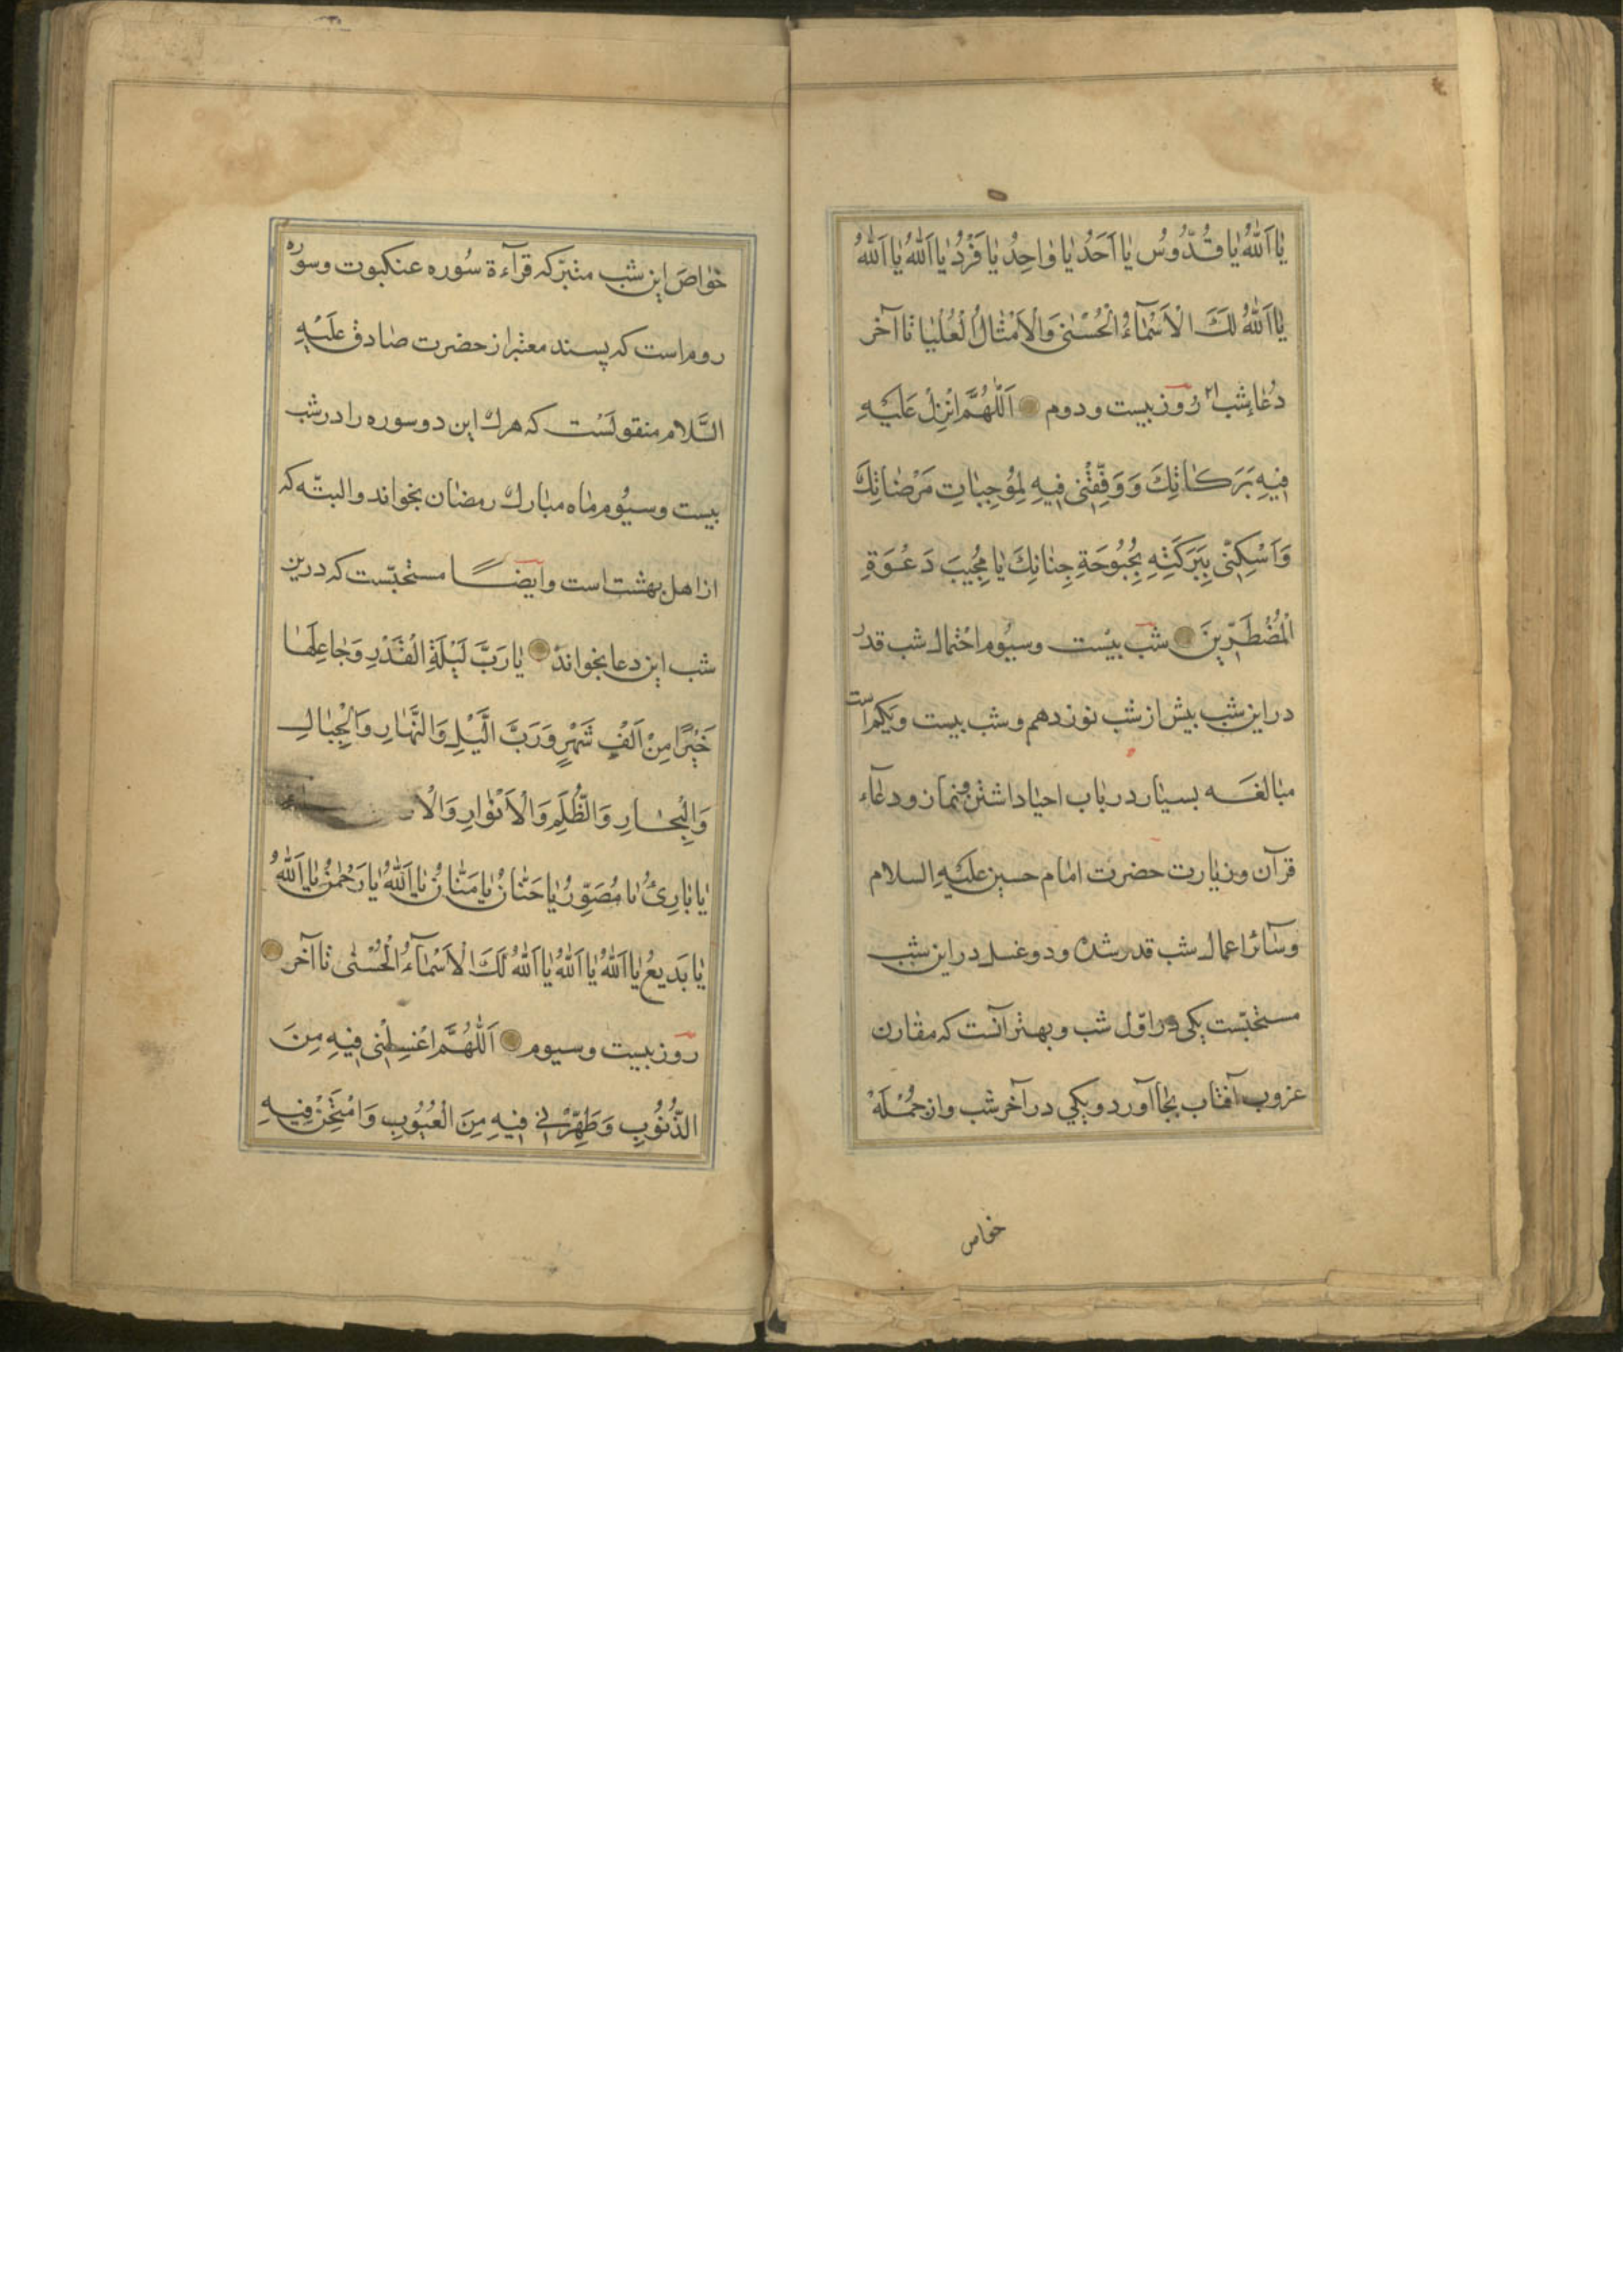 یٰا اَللّٰهُ یٰا قُدُّوسُ یٰا اَحَدُ یٰا وٰاحِدُ یٰا فَرْدُ یٰا اَللّٰهُ یٰا اَللّٰهُ
یٰا اَللّٰهُ لَكَ الْاَسْمٰٓاءُ الْحُسْنٰى وَالْاَمْثٰالُ الْعُلْیٰا تٰا آخر
دُعٰاءِ شب ٢١ رُوز بیست و دوم اَللّٰهُمَّ انْزِلْ عَلَیْهِ
فِیْهِ بَرَكٰاتِكَ وَوَفِّقْنٖى فِیهِ لِمُوجِبٰاتِ مَرْضٰاتِكَ
وَاَسْكِنّٖى بِبَرَكَتِهِ بُحْبُوحَةِ جِنٰانِكَ یٰا مُجٖیبَ دَعْوَةِ
الْمُضْطَرّٖینَ شب بیْست وسیُوم احْتمال شب قدر
در این شب بیش از شب نوزدهم و شب بیست ویكم است
مبٰالغه بسیٰار در بٰاب احیٰا داشتن و نماز و دعٰاء
قرآن و زیٰارت حضرت امٰام حسین علیهِ السلام
وسٰائر اعمال شب قدر شده و دو غسل در این شب
مستحبّست یكی در اوّل شب و بهتر آنست كه مقٰارن
غروب آفتٰاب بجٰا آورد و یكی در آخر شب و از جُمْلَهْ
خواص
خوٰاصّ این شب متبرّ كه قرآءة سُوره عنكبوت و سوره
روم است كه بسند معتبر از حضرت صٰادق عَلَیْهِ
السَّلام منقولَسْت كه هرك این دو سوره را در شب
بیست و سیُوم مٰاه مبٰارك رمضٰان بخواند و البتّه كه
از اهل بهشت است و ایضًا مستحبّست كه درین
شب این دعا بخواند یٰا رَبَّ لَیْلَةِ الْقَدْرِ وَجٰاعِلَهٰا
خَیْرًا مِنْ اَلْفِ شَهْرٍ وَرَبَّ الَّیْلِ وَالنَّهٰارِ وَالْجِبٰالِ
وَالْبِحٰارِ وَالظُّلَمِ وَالْاَنْوٰارِ وَالْا
یٰا بٰارِئُ یٰا مُصَوِّرُ یٰا حَنّٰانُ یٰا مَنّٰانُ یٰا اَللّٰهُ یٰا رَحْمٰنُ یٰا اَللّٰهُ
یٰا بَدیعُ یٰا اَللّٰهُ یٰا اَللّٰهُ یٰا اَللّٰهُ لَكَ الْاَسْمٰٓاءُ الْحُسْنٰى تٰا آخر
روز بیست و سیوم اَللّٰهُمَّ اغْسِلْنٖى فِیهِ مِنَ
الذُّنُوْبِ وَطَهِّرْنٖی فٖیهِ مِنَ الْعُیُوْبِ وَامْتَحِنْ فٖیهِ